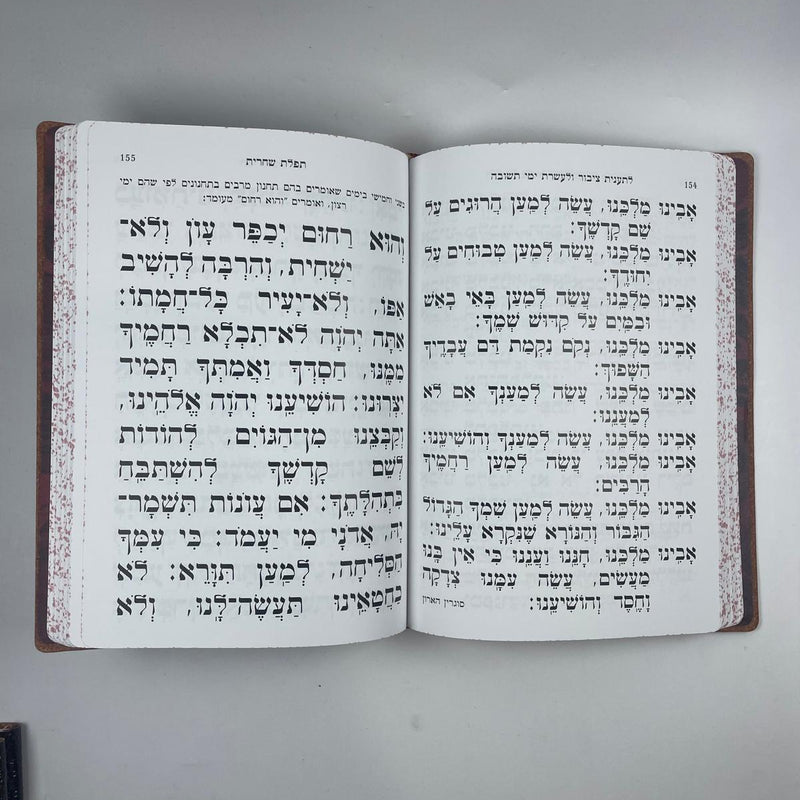 154
לתענית ציבור ולעשרת ימי תשובה
אָבִינוּ מַלְכֵּנוּ, עֲשֵׂה לְמַעַן הֲרוּגִים עַל
שֵׁם קָדְשֶׁךָ:
אָבִינוּ מַלְכֵּנוּ, עֲשֵׂה לְמַעַן טְבוּחִים עַל
יִחוּדֶךָ:
אָבִינוּ מַלְכֵּנוּ, עֲשֵׂה לְמַעַן בָּאֵי בָאֵשׁ
וּבַמַּיִם עַל קִדּוּשׁ שְׁמֶךָ:
אָבִינוּ מַלְכֵּנוּ, נְקֹם נִקְמַת דַּם עֲבָדֶיךָ
הַשָּׁפוּךְ:
אָבִינוּ מַלְכֵּנוּ, עֲשֵׂה לְמַעַנְךָ אִם לֹא
לְמַעֲנֵנוּ:
אָבִינוּ מַלְכֵּנוּ, עֲשֵׂה לְמַעַנְךָ וְהוֹשִׁיעֵנוּ:
אָבִינוּ מַלְכֵּנוּ, עֲשֵׂה לְמַעַן רַחֲמֶיךָ
הָרַבִּים:
אָבִינוּ מַלְכֵּנוּ, עֲשֵׂה לְמַעַן שִׁמְךָ הַגָּדוֹל
הַגִּבּוֹר וְהַנּוֹרָא שֶׁנִּקְרָא עָלֵינוּ:
אָבִינוּ מַלְכֵּנוּ, חָנֵּנוּ וַעֲנֵנוּ כִּי אֵין בָּנוּ
מַעֲשִׂים, עֲשֵׂה עִמָּנוּ צְדָקָה
וָחֶסֶד וְהוֹשִׁיעֵנוּ: סוגרין הארון
תפלת שחרית
155
בשני וחמישי בימים שאומרים בהם תחנון מרבים בתחנונים לפי שהם ימי
רצון, ואומרים "והוא רחום" מעומד:
וְהוּא רַחוּם יְכַפֵּר עָוֹן וְלֹא־
יַשְׁחִית, וְהִרְבָּה לְהָשִׁיב
אַפּוֹ, וְלֹא־יָעִיר כָּל־חֲמָתוֹ:
אַתָּה יְהֹוָה לֹא־תִכְלָא רַחֲמֶיךָ
מִמֶּנּוּ, חַסְדְּךָ וַאֲמִתְּךָ תָּמִיד
יִצְּרוּנוּ: הוֹשִׁיעֵנוּ יְהֹוָה אֱלֹהֵינוּ,
וְקַבְּצֵנוּ מִן־הַגּוֹיִם, לְהוֹדוֹת
לְשֵׁם קָדְשֶׁךָ לְהִשְׁתַּבֵּחַ
בִּתְהִלָּתֶךָ: אִם עֲוֹנוֹת תִּשְׁמָר־
יָהּ, אֲדֹנָי מִי יַעֲמֹד: כִּי עִמְּךָ
הַסְּלִיחָה, לְמַעַן תִּוָּרֵא: לֹא
כַחֲטָאֵינוּ תַּעֲשֶׂה־לָּנוּ, וְלֹא